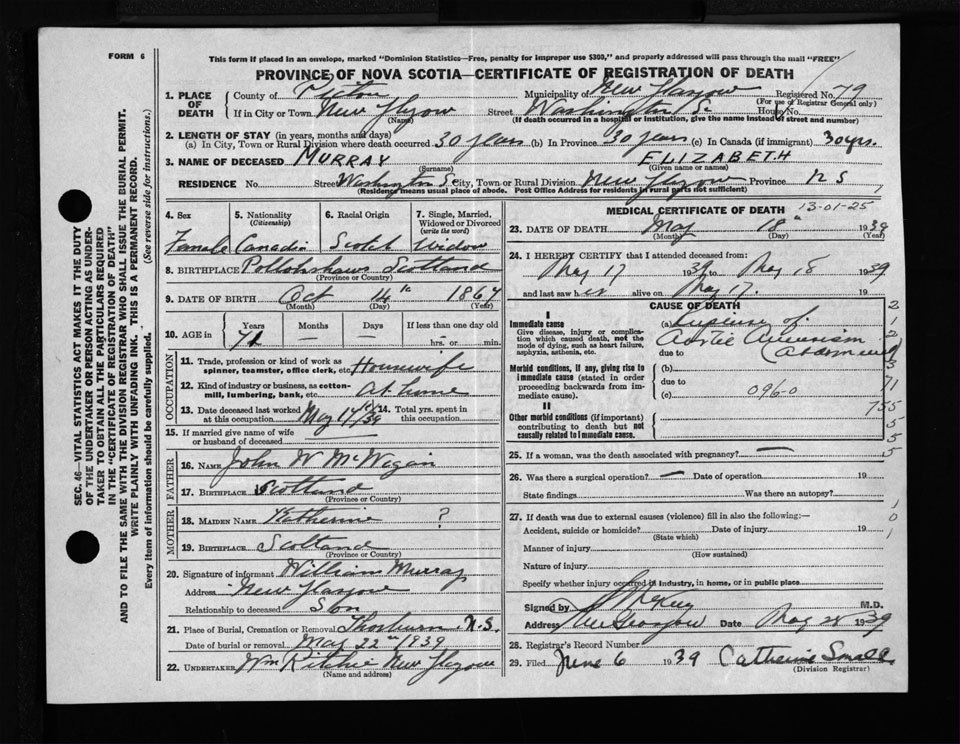 FORM 6
This form if placed in an envelope, marked "Dominion Statistics—Free, penalty for improper use $300," and properly addressed will pass through the mail "FREE"
PROVINCE OF NOVA SCOTIA—CERTIFICATE OF REGISTRATION OF DEATH
1. PLACE OF DEATH
County of Pictou Municipality of New Glasgow Registered No. 79
(For use of Registrar General only)
If in City or Town New Glasgow Street Washington St House No.
(Name) (If death occurred in a hospital or institution, give the name instead of street and number)
2. LENGTH OF STAY (in years, months and days)
(a) In City, Town or Rural Division where death occurred 30 years (b) In Province 30 years (c) In Canada (if immigrant) 30 yrs.
3. NAME OF DECEASED MURRAY ELIZABETH
(Surname) (Given name or names)
RESIDENCE No. Street Washington St. City, Town or Rural Division New Glasgow Province N S
(Residence means usual place of abode. Post Office Address for residents in rural parts not sufficient)
4. Sex 5. Nationality (Citizenship) 6. Racial Origin 7. Single, Married, Widowed or Divorced (write the word)
Female Canadian Scotch Widow
8. BIRTHPLACE Pollokshaws Scotland
(Province or Country)
9. DATE OF BIRTH Oct 14 1867
(Month) (Day) (Year)
10. AGE in Years Months Days If less than one day old
71 — — hrs. or min.
OCCUPATION
11. Trade, profession or kind of work as spinner, teamster, office clerk, etc. Housewife
12. Kind of industry or business, as cotton-mill, lumbering, bank, etc. At home
13. Date deceased last worked at this occupation May 17/39 14. Total yrs. spent in this occupation
15. If married give name of wife or husband of deceased
FATHER
16. NAME John W McWegan
17. BIRTHPLACE Scotland
(Province or Country)
MOTHER
18. MAIDEN NAME Katherine ?
19. BIRTHPLACE Scotland
(Province or Country)
20. Signature of informant William Murray
Address New Glasgow
Relationship to deceased Son
21. Place of Burial, Cremation or Removal Thorburn N.S.
Date of burial or removal May 22nd 1939
22. UNDERTAKER Wm Ritchie New Glasgow
(Name and address)
MEDICAL CERTIFICATE OF DEATH 13-01-25
23. DATE OF DEATH May 18th 1939
(Month) (Day) (Year)
24. I HEREBY CERTIFY that I attended deceased from:
May 17 1939 to May 18 1939
and last saw her alive on May 17. 19
CAUSE OF DEATH
I
Immediate cause
Give disease, injury or complication which caused death, not the mode of dying, such as heart failure, asphyxia, asthenia, etc.
(a) Rupture of
Aortic Aneurism
due to
Morbid conditions, if any, giving rise to immediate cause (stated in order proceeding backwards from immediate cause).
(b)
due to
(c) 096-0
II
Other morbid conditions (if important) contributing to death but not causally related to immediate cause.
25. If a woman, was the death associated with pregnancy? —
26. Was there a surgical operation? — Date of operation — 19
State findings Was there an autopsy?
27. If death was due to external causes (violence) fill in also the following:—
Accident, suicide or homicide? Date of injury 19
(State which)
Manner of injury
(How sustained)
Nature of injury
Specify whether injury occurred in industry, in home, or in public place
Signed by M.D.
Address New Glasgow Date May 1939
28. Registrar's Record Number
29. Filed June 6 1939 Catherine Small
(Division Registrar)
SEC. 46—VITAL STATISTICS ACT MAKES IT THE DUTY
OF THE UNDERTAKER OR PERSON ACTING AS UNDER-
TAKER TO OBTAIN ALL THE PARTICULARS REQUIRED
IN THE "CERTIFICATE OF REGISTRATION OF DEATH"
AND TO FILE THE SAME WITH THE DIVISION REGISTRAR WHO SHALL ISSUE THE BURIAL PERMIT.
WRITE PLAINLY WITH UNFADING INK. THIS IS A PERMANENT RECORD.
Every item of information should be carefully supplied. (See reverse side for instructions.)